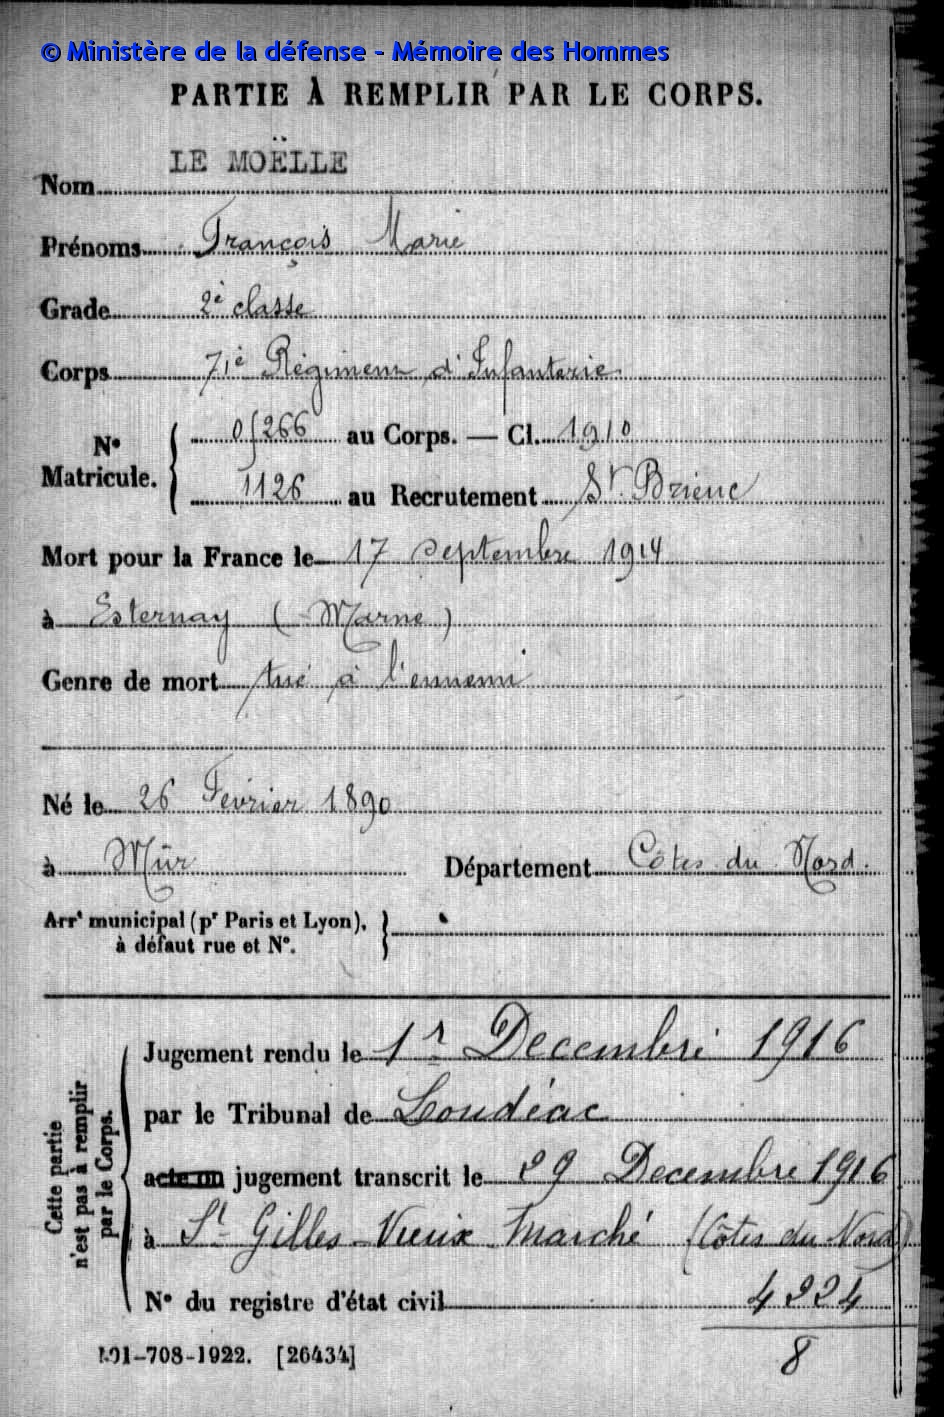 © Ministère de la défense - Mémoire des Hommes
PARTIE À REMPLIR PAR LE CORPS.
LE MOËLLE
Nom
Prénoms François Marie
Grade 2e classe
Corps 71e Régiment d'Infanterie
N° Matricule.
0/266 au Corps. — Cl. 1910
1126 au Recrutement St. Brieuc
Mort pour la France le 17 septembre 1914
à Esternay (Marne)
Genre de mort tué à l'ennemi
Né le 26 Février 1890
à Mûr Département Côtes du Nord.
Arrt municipal (pr Paris et Lyon),
à défaut rue et N°.
Cette partie
n'est pas à remplir
par le Corps.
Jugement rendu le 1r Decembre 1916
par le Tribunal de Loudéac
acte ou jugement transcrit le 29 Decembre 1916
à St Gilles-Vieux Marché (Côtes du Nord)
N° du registre d'état civil
4224
8
101-708-1922. [26434]